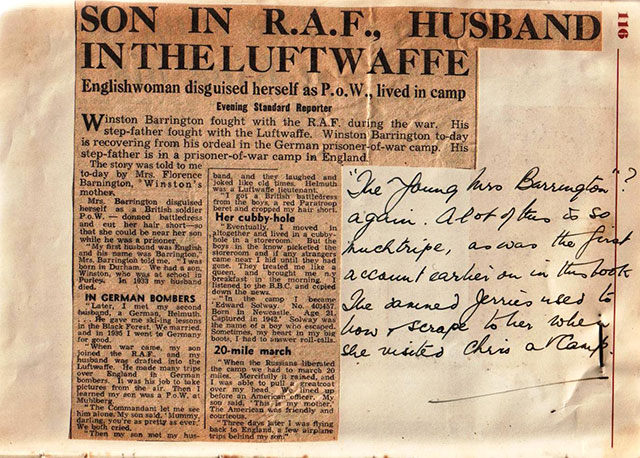 SON IN R.A.F., HUSBAND
IN THE LUFTWAFFE
Englishwoman disguised herself as P.o.W., lived in camp
Evening Standard Reporter
Winston Barrington fought with the R.A.F. during the war. His
step-father fought with the Luftwaffe. Winston Barrington to-day
is recovering from his ordeal in the German prisoner-of-war camp. His
step-father is in a prisoner-of-war camp in England.
The story was told to me
to-day by Mrs. Florence
Barnington, "Winston's
mother.
Mrs. Barrington disguised
herself as a British soldier
P.o.W. — donned battledress
and cut her hair short—so
that she could be near her son
while he was a prisoner.
"My first husband was English
and his name was Barrington,"
Mrs. Barrington told me. "I was
born in Durham. We had a son,
Winston, who was at school in
Purley. In 1933 my husband
died.
IN GERMAN BOMBERS
"Later, I met my second
husband, a German, Helmuth.
He gave me ski-ing lessons
in the Black Forest. We married,
and in 1935 I went to Germany
for good.
"When war came, my son
joined the R.A.F. and my
husband was drafted into the
Luftwaffe. He made many trips
over England in German
bombers. It was his job to take
pictures from the air. Then I
learned my son was a P.o.W. at
Muhlberg.
"The Commandant let me see
him alone. My son said, 'Mummy,
darling, you're as pretty as ever.'
We both cried.
"Then my son met my hus-
band, and they laughed and
joked like old times. Helmuth
was a Luftwaffe lieutenant.
"I got a British battledress
from the boys, a red Paratroop
beret and cropped my hair short.
Her cubby-hole
"Eventually, I moved in
altogether and lived in a cubby-
hole in a storeroom. But the
boys in the know picketed the
storeroom and if any strangers
came near I hid until they had
gone. They treated me like a
Queen, and brought me my
breakfast in the morning. I
listened to the B.B.C. and copied
down the news.
"In the camp I became
'Edward Solway. No. 
Born in Newcastle. Age 21.
Captured 1942.' Solway was
the name of a boy who escaped.
Sometimes, my heart in my big
boots, I had to answer roll-calls.
20-mile march
"When the Russians liberated
the camp we had to march 20
miles. Mercifully it rained, and
I was able to pull a greatcoat
over my head. We lined up
before an American officer. My
son said, 'This is my mother.'
The American was friendly and
courteous.
"Three days later I was flying
back to England, a few airplane
trips behind my son."
116
"The Young Mrs Barrington"?
again. A lot of this is so
much tripe, as was the first
account earlier on in this book
The damned Jerries used to
bow & scrape to her when
she visited Chris at Camp.